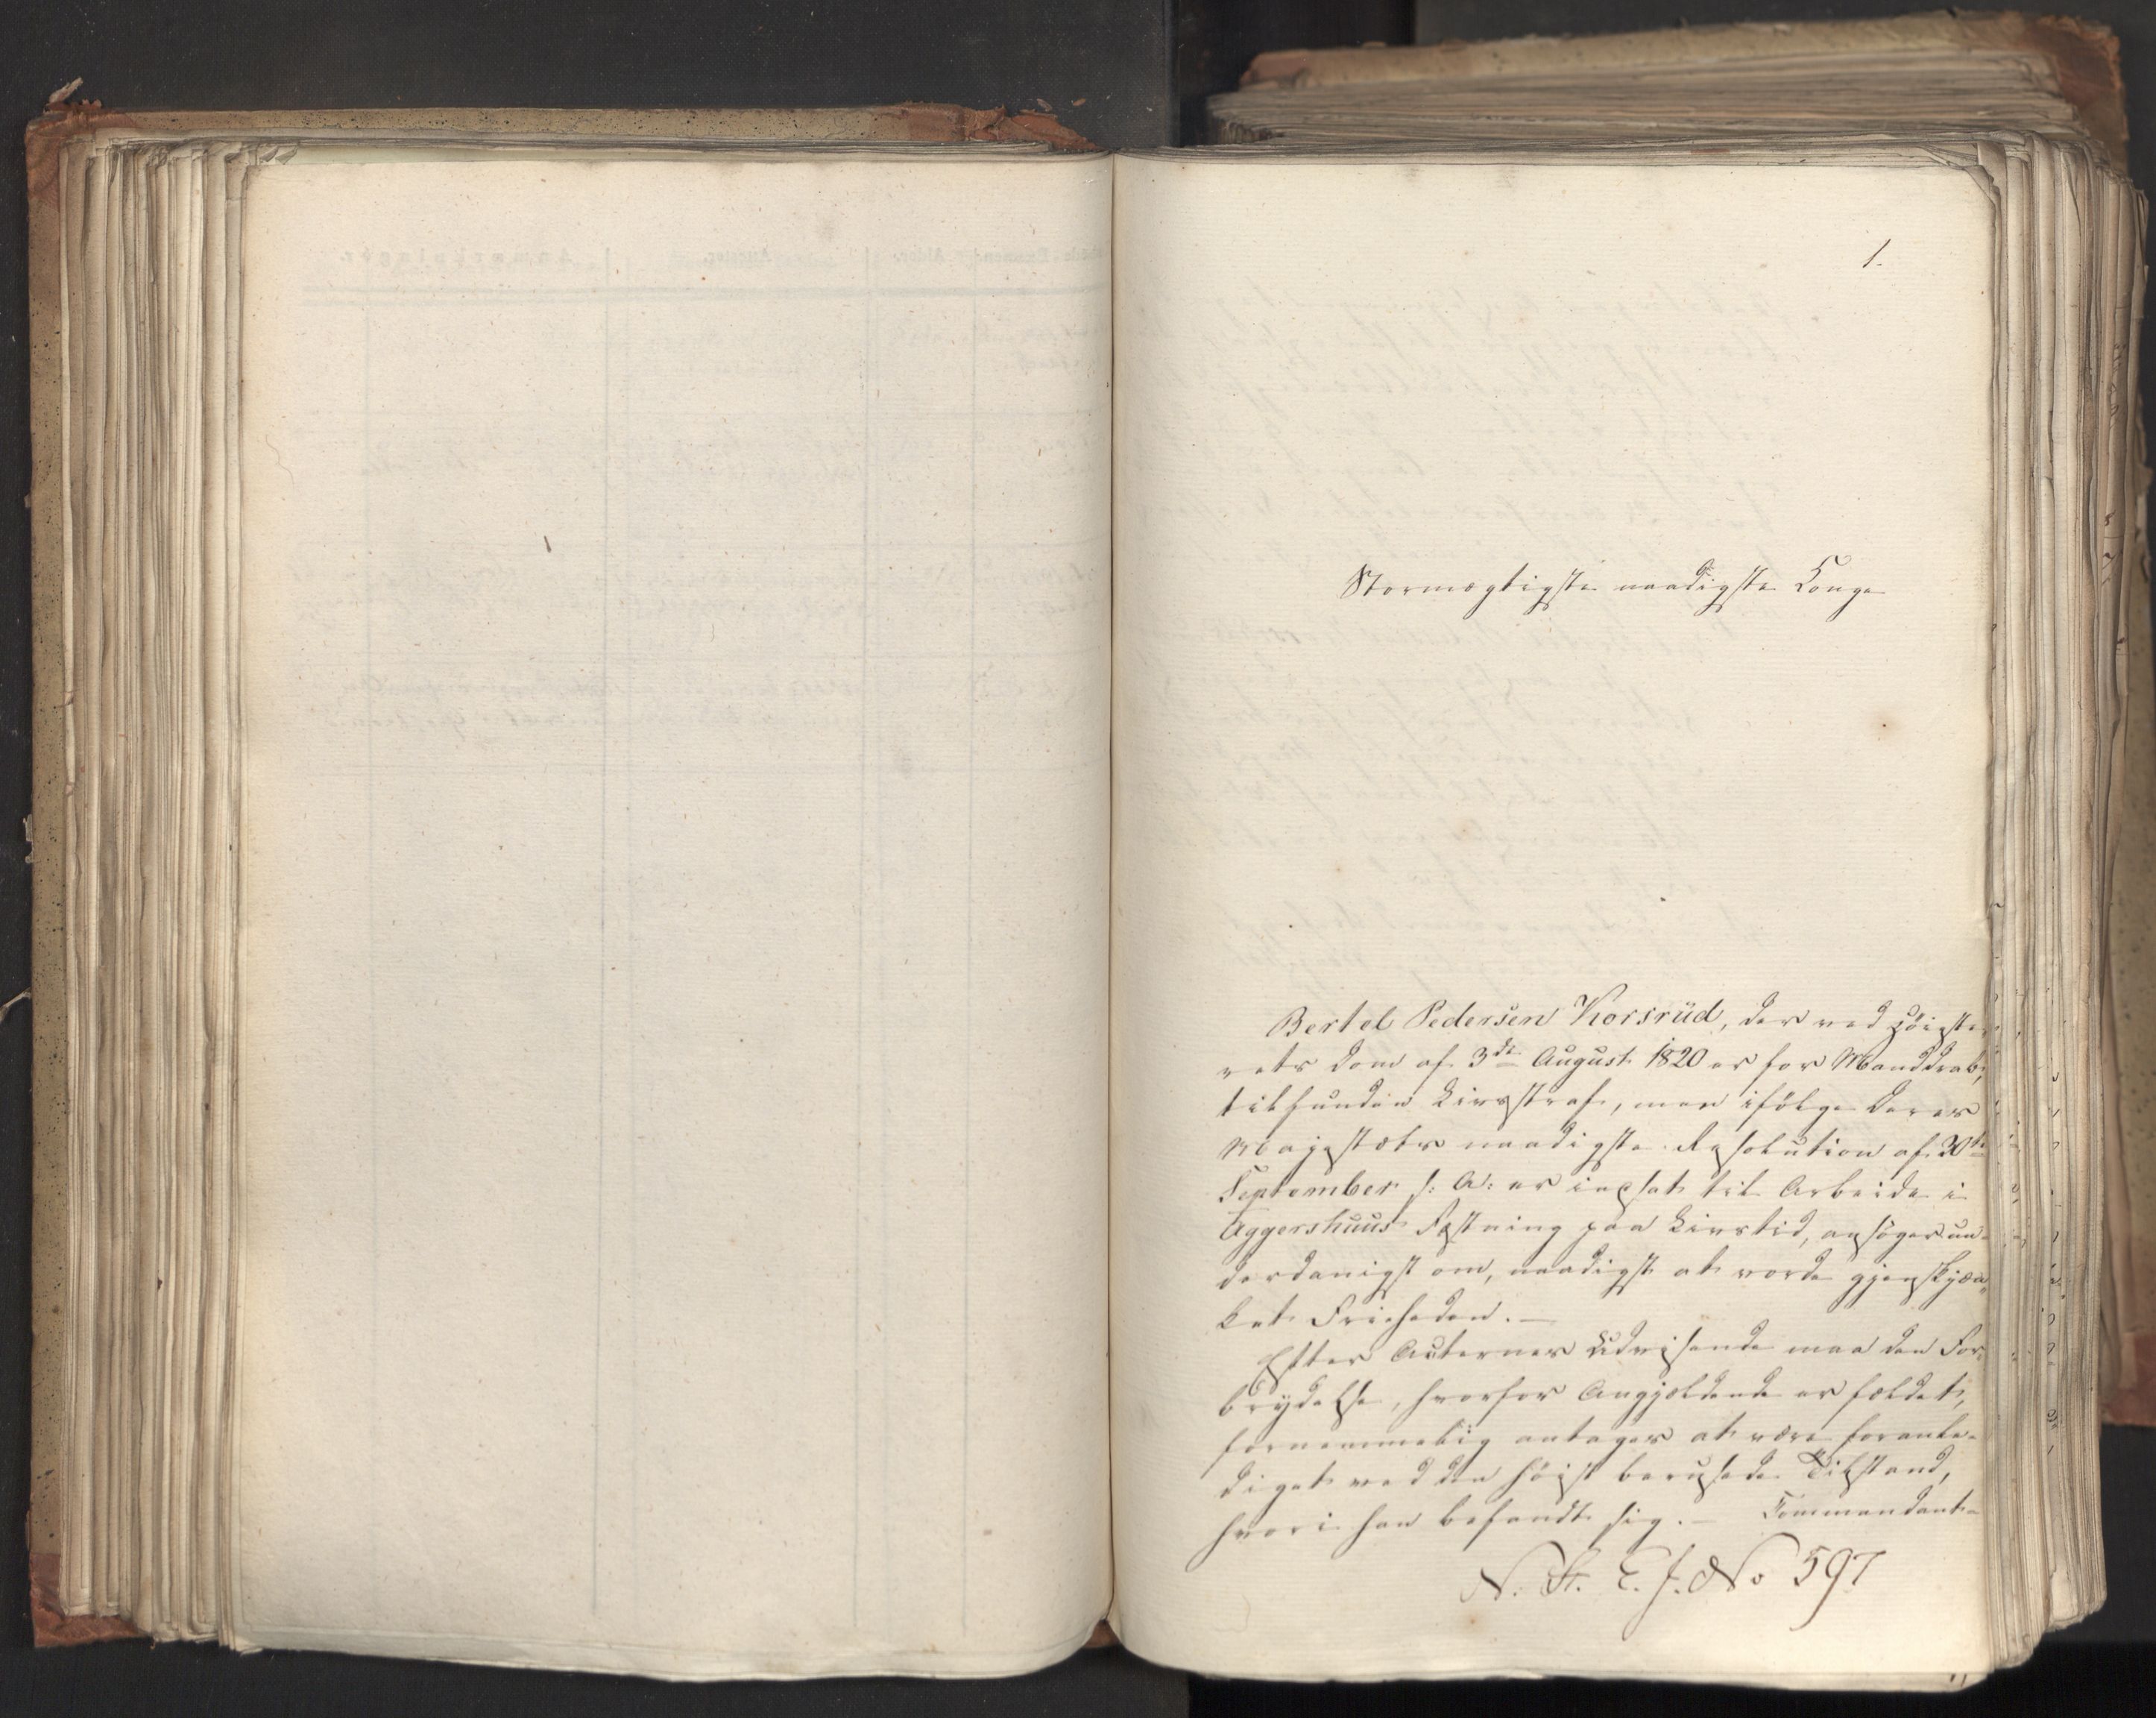 1.
Stormægtigste naadigste Konge
Bertel Pedersen Korsrüd, der ved Höieste-
rets Dom af 3die August 1820 er for Manddrab,
tilfunden Livsstraf, men ifölge Deres
Majestæts naadigste Resolution af 30te
September s: A: er indsat til Arbeide i
Aggershuus Fæstning paa Livstid, ansöger un-
derdanigst om, naadigst at vorde gjenskjæn-
ket Friheden. —
Efter Acternes Udvisende maa den For-
brydelse, hvorfor Angjældende er fældet,
fornemmelig antages at være foranle-
diget ved den höist berusede Tilstand,
hvori han befandt sig. — Commandant-
N. St. C. J. No 597